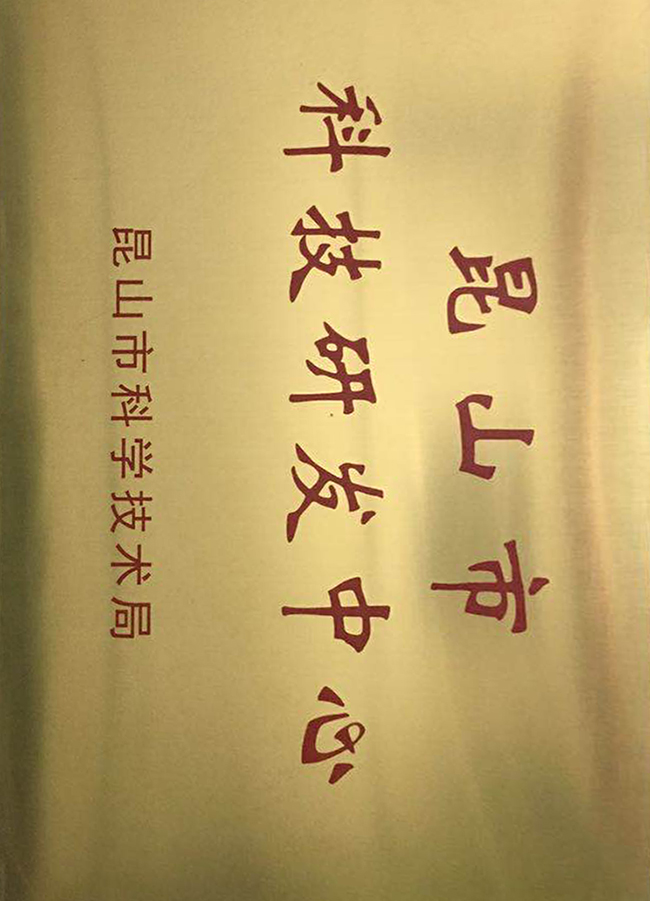 昆山市
科技研发中心
昆山市科学技术局